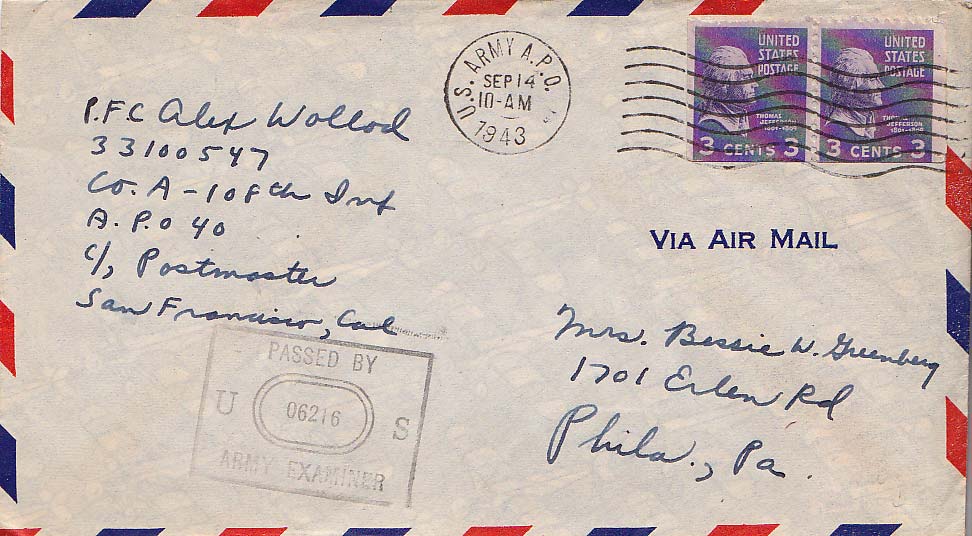 P.F.C Alex Wollod
33100547
Co. A - 108th Inf
A.P.O 40
c/o Postmaster
San Francisco, Cal
U.S. ARMY A.P.O.
SEP 14
10-AM
1943
UNITED
STATES
POSTAGE
THOMAS
JEFFERSON
1801-1809
3 CENTS 3
UNITED
STATES
POSTAGE
THOMAS
JEFFERSON
1801-1809
3 CENTS 3
VIA AIR MAIL
Mrs. Bessie W. Greenberg
1701 Erlen Rd
Phila., Pa.
PASSED BY
U 06216 S
ARMY EXAMINER